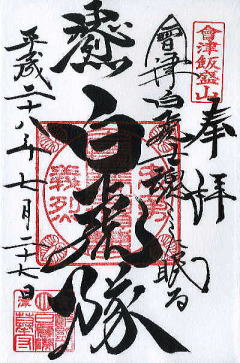 會津飯盛山
奉拝
會津白虎士魂之眠る
白虎隊
義烈
平成二十八年七月二十七日